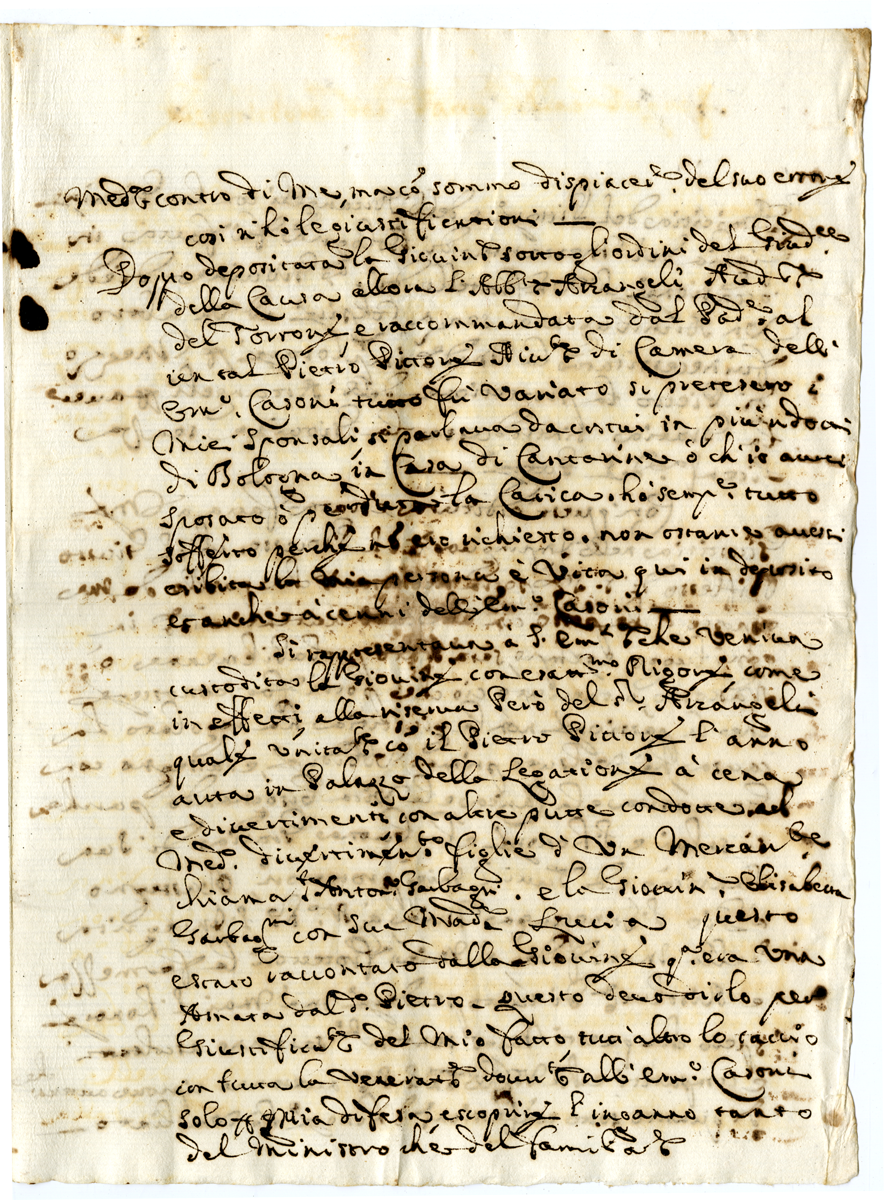 Med.e contro di Me, ma cõ sommo dispiacer.e del suo errore
cosi n hò le giustificationi —
Doppo depositata la Giovine sotto gli ordini del Giud.ce
della Causa allora l'Abb.te Arcangeli Aud.re
del Torrone, e raccommandata dal Pad.e al
Pietro Pittore Aiut.e di Camera dell'
Em.o Casoni tutto fù variato si pretesero i
Miei Sponsali, si parlava da costui in più
di Bologna in Casa di Cantarine ò ch'io avrei
sposato ò la Carica, hò semp.e tutto
sofferto perche richiesto, non ostante avessi
esibita la mia persona e Vita qui in deposito
et anche à cenni dell'Em.o Casoni —
Si rappresentava à S. Em.a che veniva
custodita la Giovine con esatt.mo Rigore come
in effetti alla riserva Però del S.r Arcangeli
quale cõ il Pietro Pittore l'anno
auta in Palazzo della Legatione à cena
e divertimenti con altre putte condotte al
Med.o divertimen.to figlie d'Un Mercan.te
chiama.to Anto.o Garbagni. e la Giovin.e Elisabetta
Garbag.ni con Sua Mad.e Lucia questo
è stato raccontato dalla Giovine q. era
Amata dal d.o Pietro – questo devo dirlo per
Giustifica.ne del Mio fatto tutt'altro lo taccio
con tutta la venerat.e dovu.ta all'em.o Casoni
solo mia difesa e scoprire l'inganno tanto
del Ministro che del